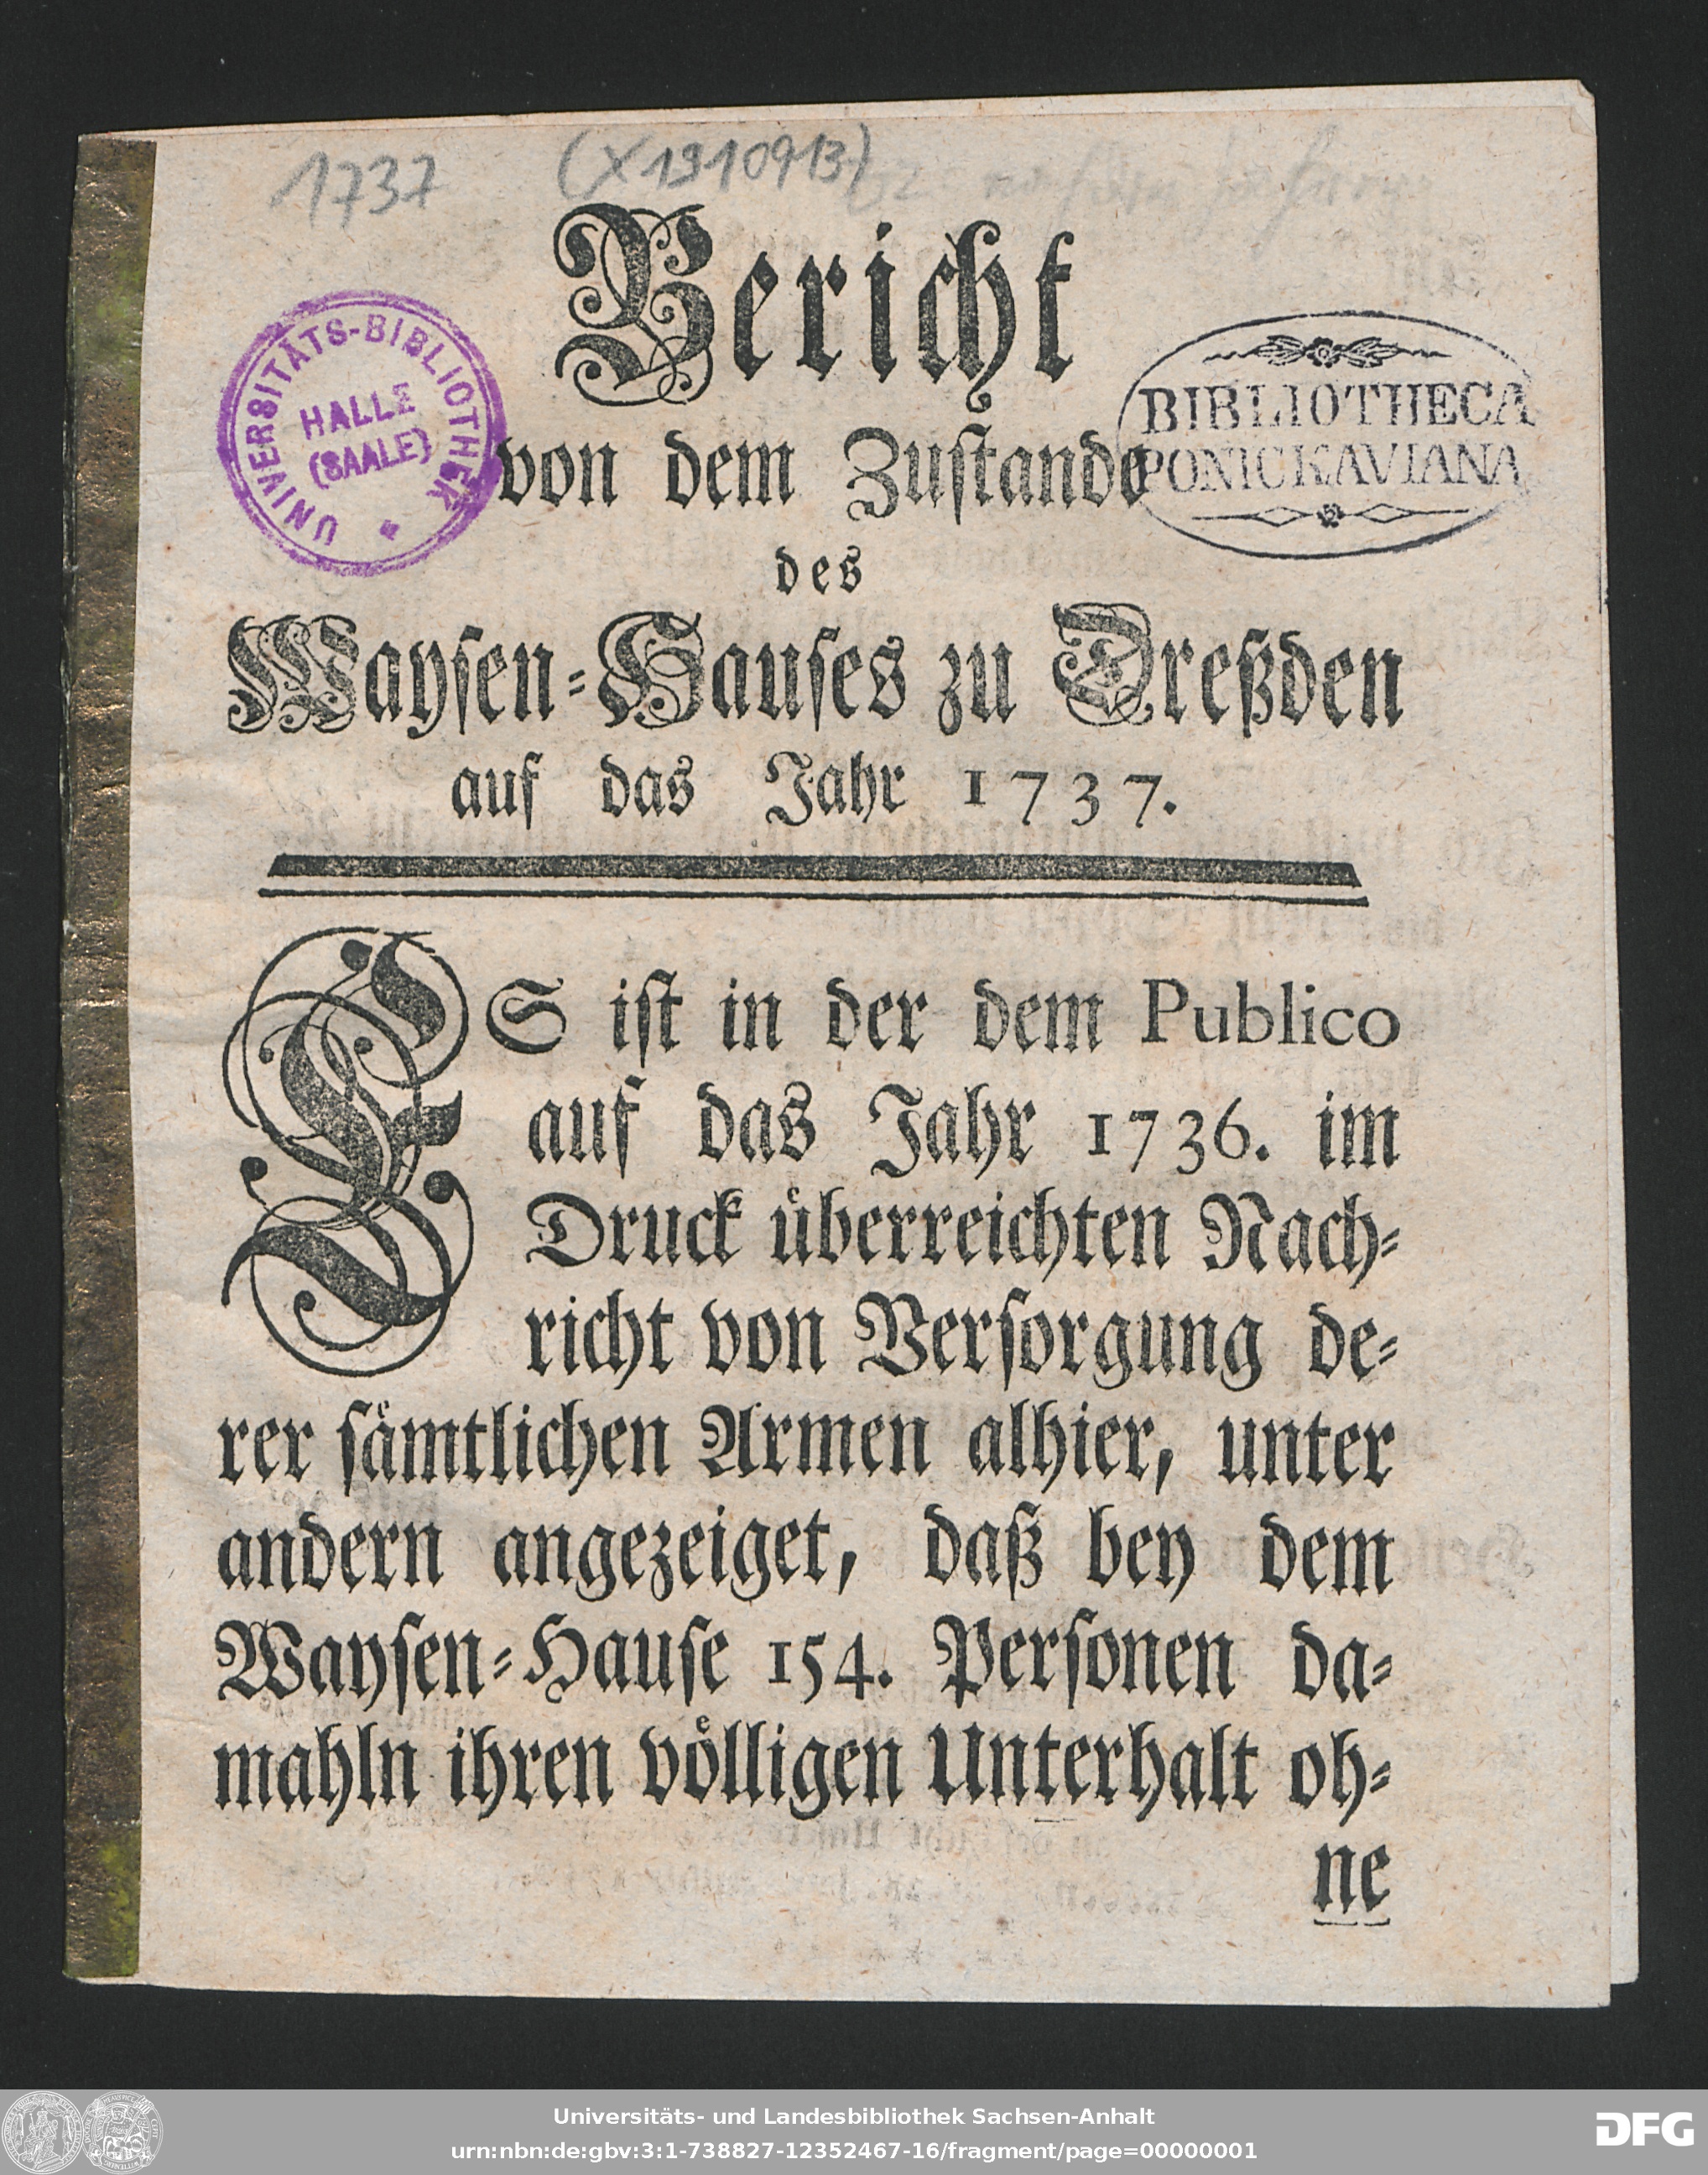 1737 (X1910913)
Bericht
von dem Zuſtande
des
Wayſen-Hauſes zu Dreßden
auf das Jahr 1737.
UNIVERSITÄTS-BIBLIOTHEK
HALLE
(SAALE)
BIBLIOTHECA
PONICKAVIANA
ES iſt in der dem Publico
auf das Jahr 1736. im
Druck uͤberreichten Nach-
richt von Verſorgung de-
rer ſaͤmtlichen Armen alhier, unter
andern angezeiget, daß bey dem
Wayſen-Hauſe 154. Perſonen da-
mahln ihren voͤlligen Unterhalt oh-
ne
Universitäts- und Landesbibliothek Sachsen-Anhalt
urn:nbn:de:gbv:3:1-738827-12352467-16/fragment/page=00000001
DFG